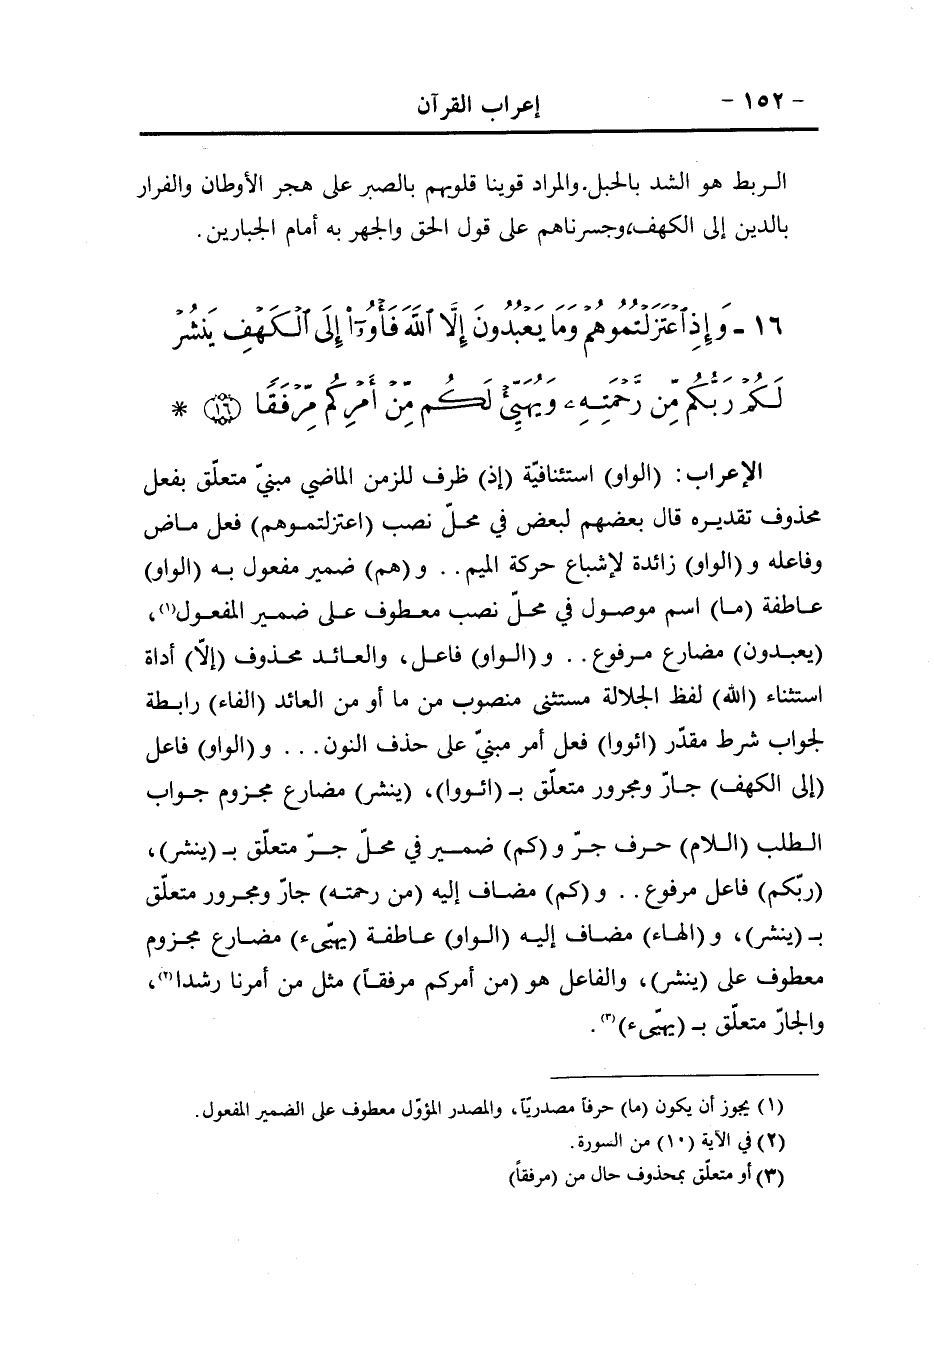 - ١٥٢ - إعراب القرآن
الـربط هو الشد بالحبل.والمراد قوينا قلوبهم بالصبر على هجر الأوطان والفرار
بالدين إلى الكهف،وجسرناهم على قول الحق والجهر به أمام الجبارين .
١٦ - وَإِذِ ٱعْتَزَلْتُمُوهُمْ وَمَا يَعْبُدُونَ إِلَّا ٱللَّهَ فَأْوُۥٓا۟ إِلَى ٱلْكَهْفِ يَنشُرْ
لَكُمْ رَبُّكُم مِّن رَّحْمَتِهِۦ وَيُهَيِّئْ لَكُم مِّنْ أَمْرِكُم مِّرْفَقًا ﴿١٦﴾ *
الإعراب : (الواو) استئنافيّة (إذ) ظرف للزمن الماضي مبنيّ متعلّق بفعل
محذوف تقديـره قال بعضهم لبعض في محـلّ نصب (اعتزلتمـوهم) فعل مـاض
وفاعله و (الواو) زائدة لإشباع حركة الميم . . و (هم) ضمير مفعول بـه (الواو)
عـاطفة (مـا) اسم موصول في محلّ نصب معـطوف عـلى ضمـير المفعـول(١)،
(يعبـدون) مضارع مـرفوع . . و (الـواو) فاعـل، والعـائـد محـذوف (إلّا) أداة
استثناء (الله) لفظ الجلالة مستثنى منصوب من ما أو من العائد (الفاء) رابـطة
لجواب شرط مقدّر (ائووا) فعل أمر مبنيّ على حذف النون . . . و (الواو) فاعل
(إلى الكهف) جـارّ ومجرور متعلّق بـ (ائـووا)، (ينشر) مضارع مجـزوم جـواب
الـطلب (الـلام) حـرف جـرّ و (كم) ضمـير في محـلّ جـرّ متعلّق بـ (ينشر)،
(ربّكم) فاعل مرفوع . . و (كم) مضـاف إليه (من رحمتـه) جارّ ومجـرور متعلّق
بـ (ينشر)، و (الهـاء) مضـاف إليـه (الـواو) عـاطفـة (يهيّىء) مضـارع مجـزوم
معطوف على (ينشر)، والفاعل هو (من أمركم مرفقـاً) مثل من أمرنا رشدا(٢)،
والجارّ متعلّق بـ (يهيّىء)(٣).
(١) يجوز أن يكون (ما) حرفاً مصدريّاً، والمصدر المؤوّل معطوف على الضمير المفعول .
(٢) في الآية (١٠) من السورة .
(٣) أو متعلّق بمحذوف حال من (مرفقاً)